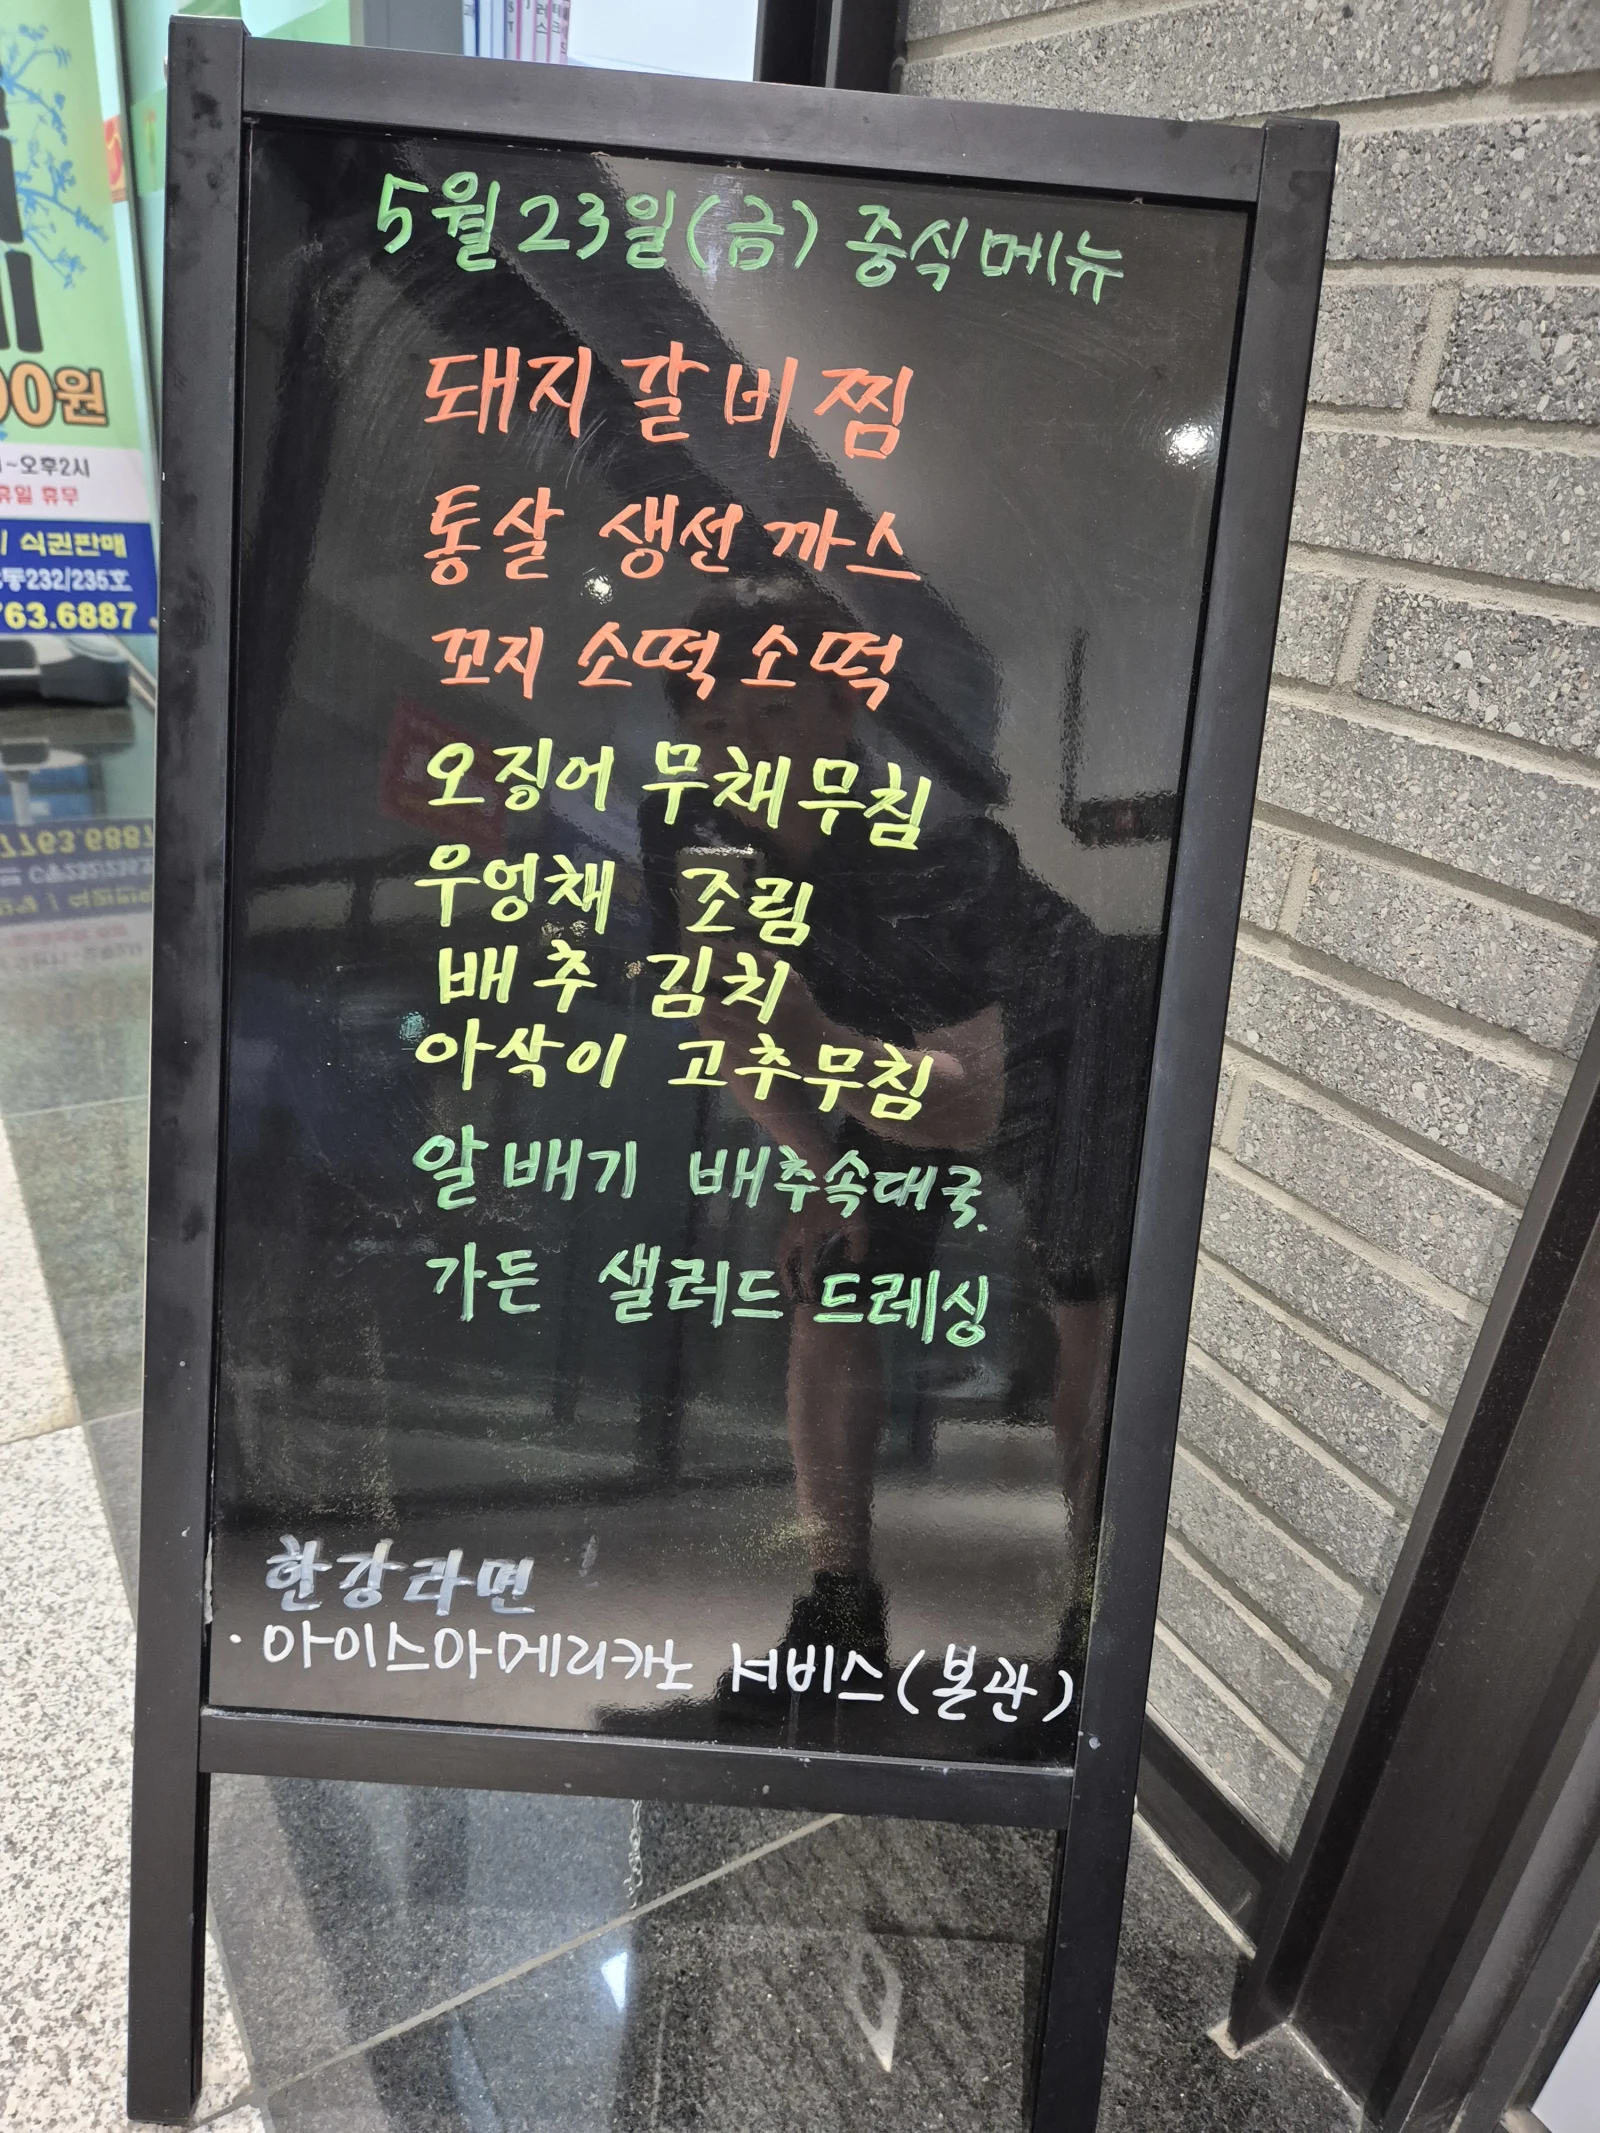 5월 23일(금) 중식메뉴
돼지갈비찜
통살 생선까스
꼬지 소떡소떡
오징어 무채무침
우엉채 조림
배추 김치
아삭이 고추무침
알배기 배추속대국.
가든 샐러드 드레싱
한강라면
· 아이스아메리카노 서비스(본관)
00원
~오후2시
휴일 휴무
식권판매
동232/235호
763.6887